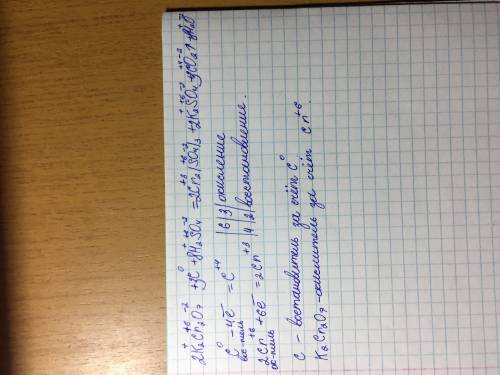 2K₂Cr₂O₇ + 3C + 8H₂SO₄ = 2Cr₂(SO₄)₃ + 2K₂SO₄ + 3CO₂↑ + 8H₂O
C⁰ - 4e̅ = C⁺⁴ |6|3| окисление
вос-тель
2Cr⁺⁶ + 6e̅ = 2Cr⁺³ |4|2| восстановление.
ок-тель
C - востановитель за счёт C⁰
K₂Cr₂O₇ - окислитель за счёт Cr⁺⁶.